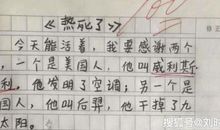 《热死了》
今天能活着，我要感谢两个
，一个是美国人，他叫威利斯
利，他发明了空调；另一个是
国人，他叫后羿，他干掉了九
太阳。
搜狐号@刘明